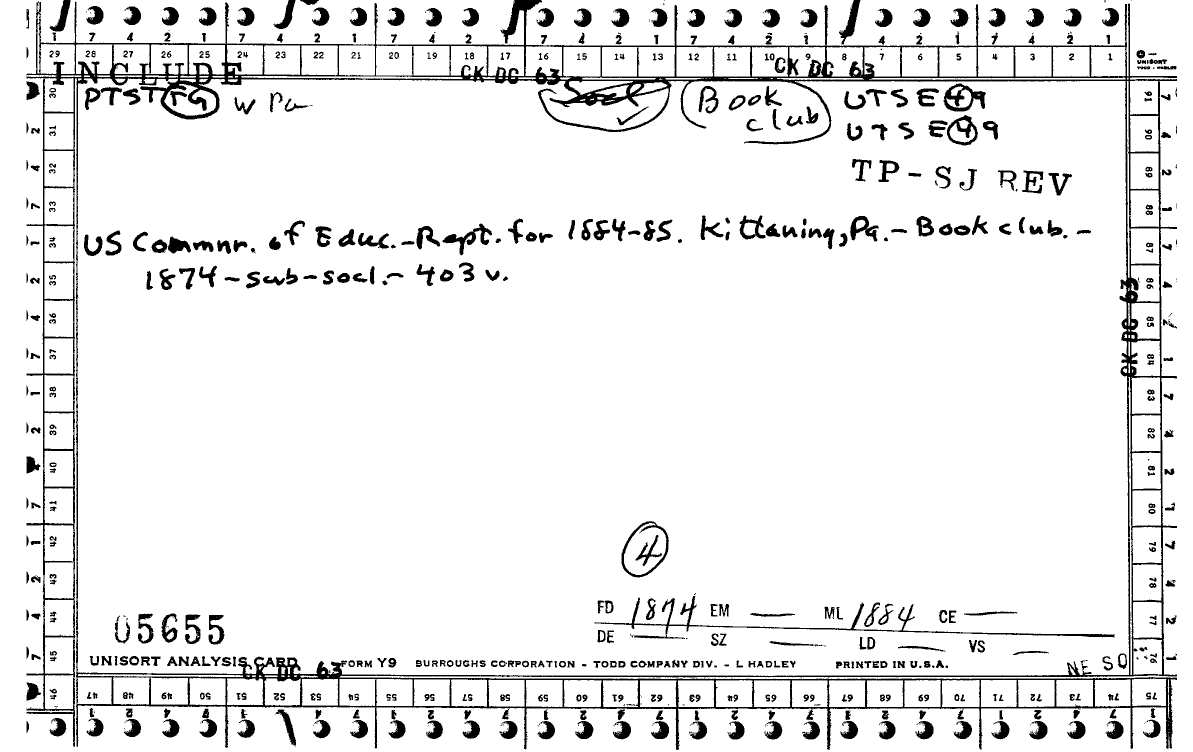 7 4 2 1 7 4 2 1 7 4 2 1 7 4 2 1 7 4 2 1 7 4 2 1 7 4 2 1
29 28 27 26 25 24 23 22 21 20 19 18 17 16 15 14 13 12 11 10 9 8 7 6 5 4 3 2 1
UNISORT
INCLUDE CK DC 63 CK DC 63
PTST FG W Pa Socl Book club UTSE 49
UTSE 49
TP-SJ REV
US Commnr. of Educ.-Rept. for 1884-85. Kittaning, Pa.-Book club.-
1874-sub-socl.-403 v.
CK DC 63
4
FD 1874 EM — ML 1884 CE —
DE — SZ — LD — VS —
05655
UNISORT ANALYSIS CARD FORM Y9 BURROUGHS CORPORATION - TODD COMPANY DIV. - L HADLEY PRINTED IN U.S.A.
CK DC 63 NE SO
30 31 32 33 34 35 36 37 38 39 40 41 42 43 44 45 46
91 90 89 88 87 86 85 84 83 82 81 80 79 78 77 76
47 48 49 50 51 52 53 54 55 56 57 58 59 60 61 62 63 64 65 66 67 68 69 70 71 72 73 74 75